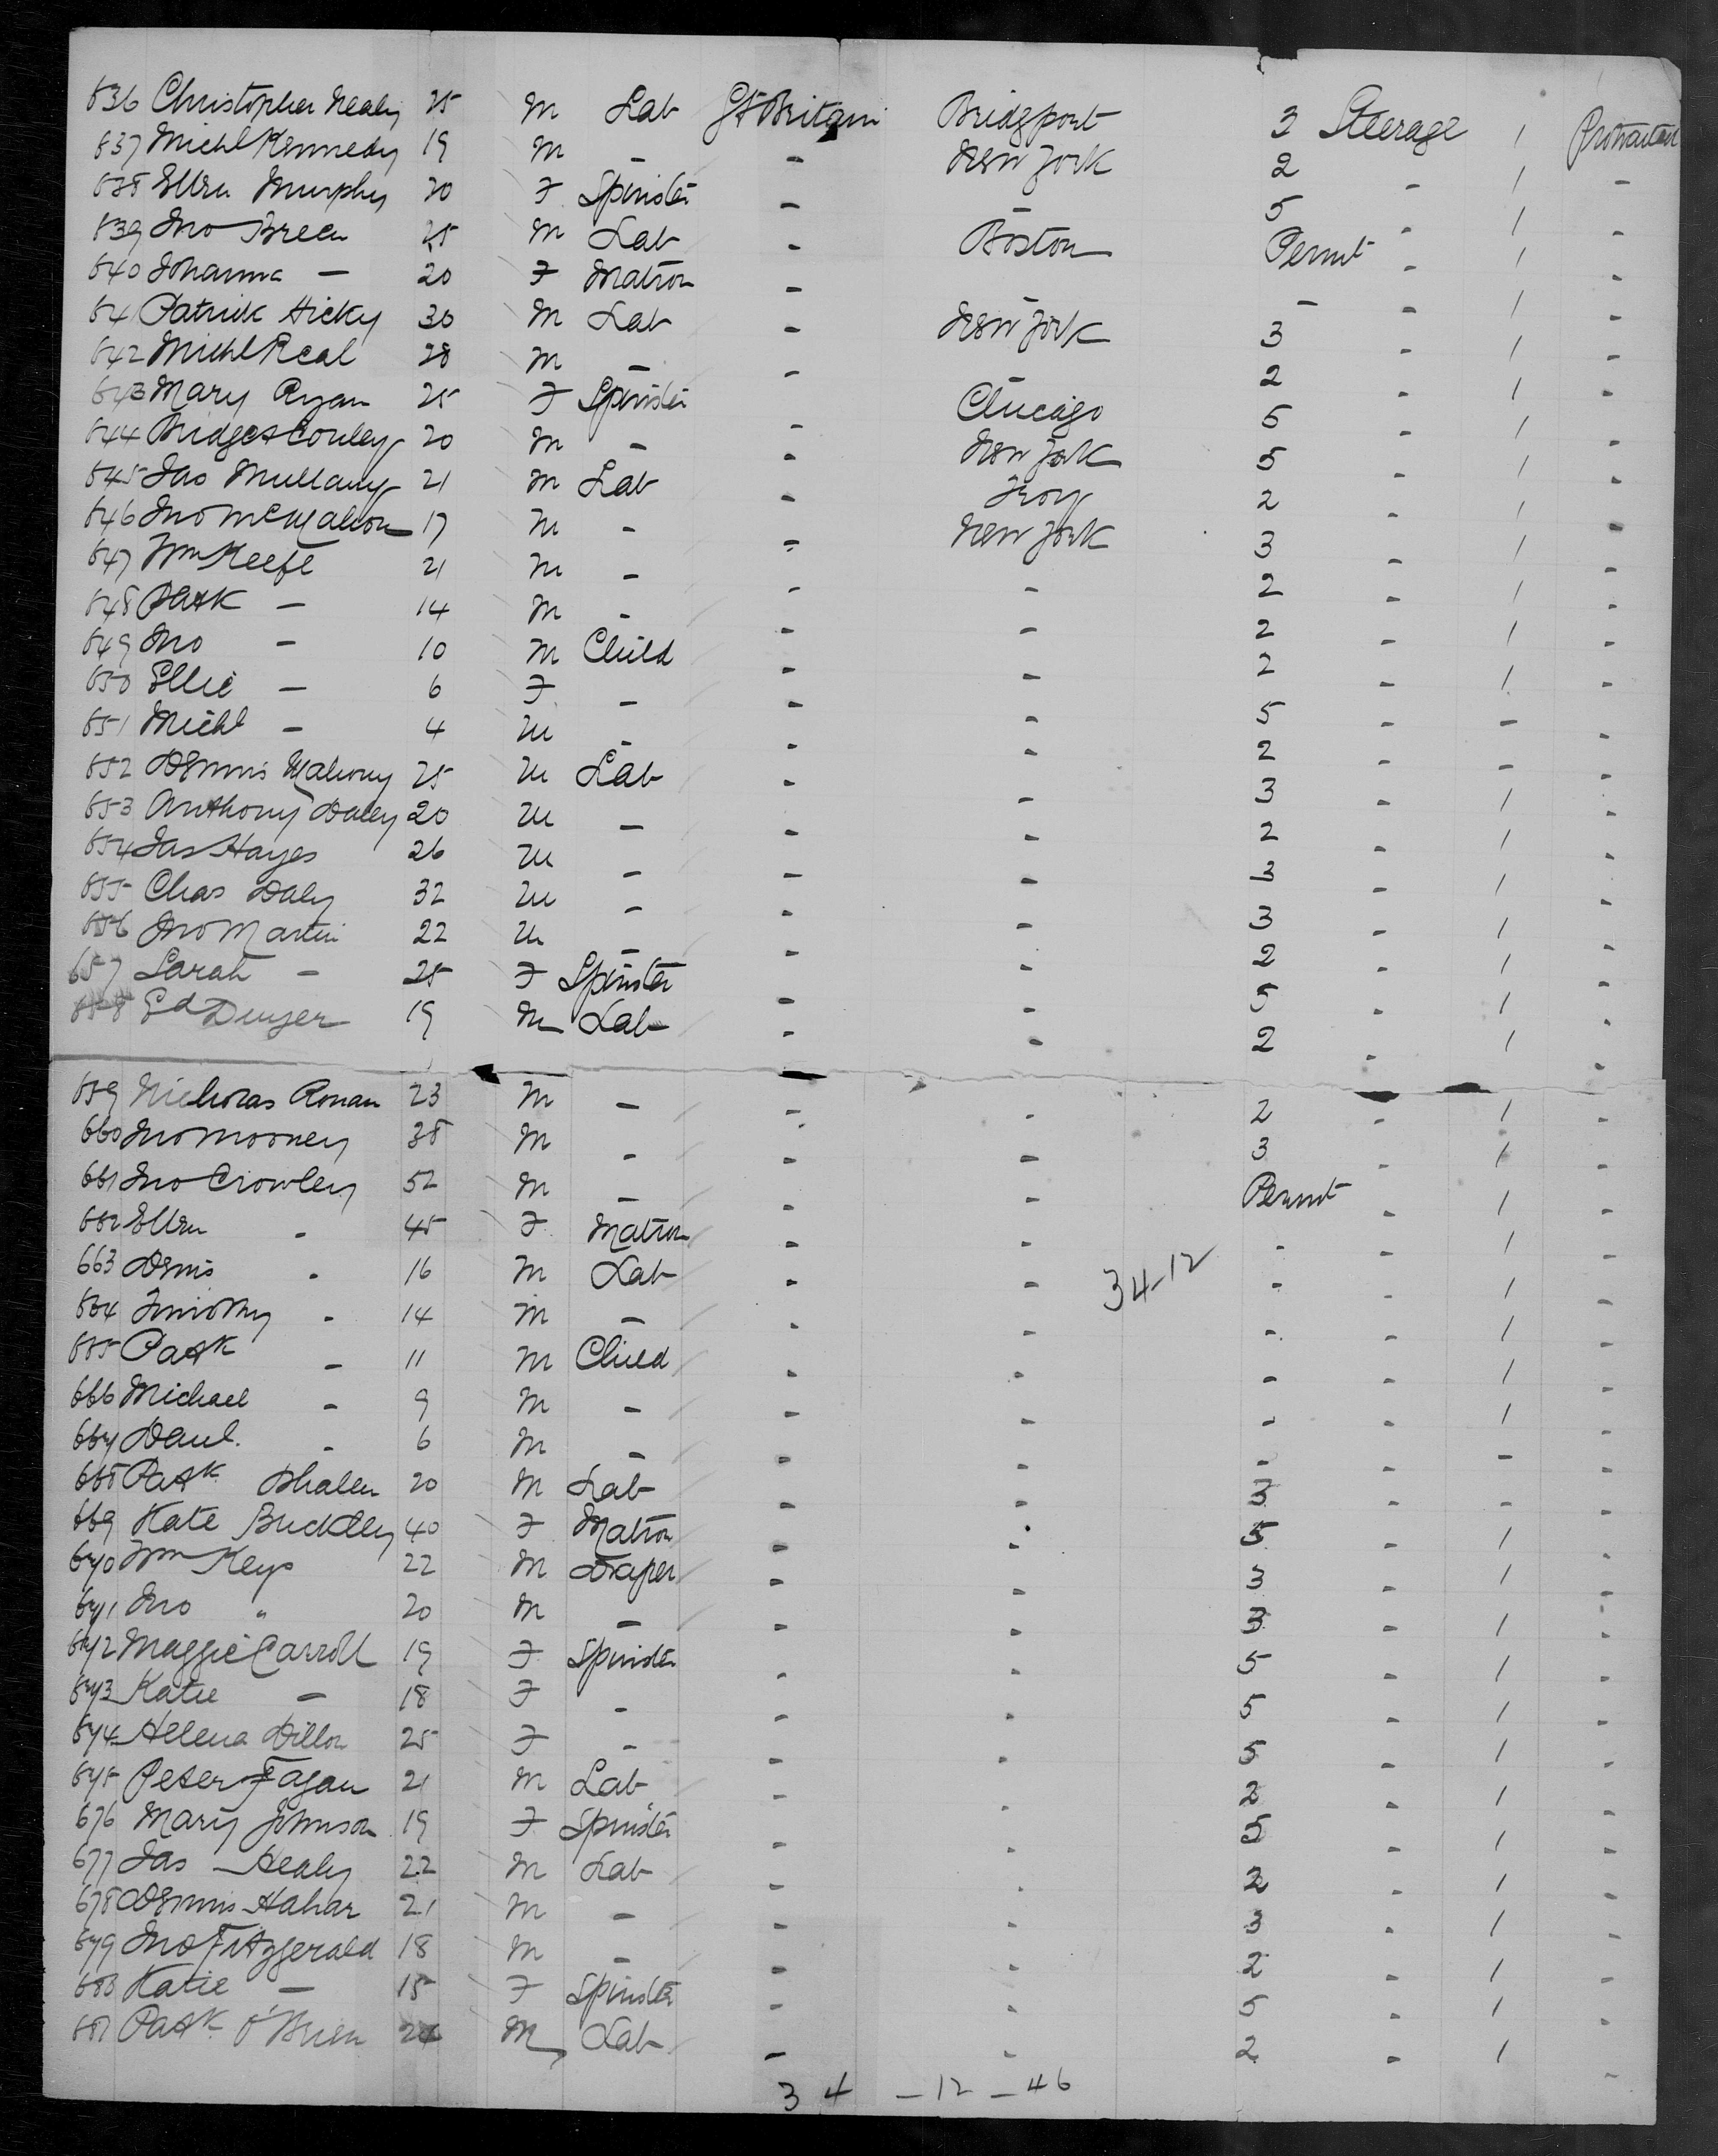 636 Christopher Nealy 25 M Lab Gt Britain Bridgport 3 Steerage 1 Protracted
637 Michl Kennedy 19 M - - New York 2 - 1 -
638 Ellen Murphy 20 F Spinster - - 5 - 1 -
639 Jno Breen 25 M Lab - Boston Permit - 1 -
640 Johanna - 20 F Matron - - - - 1 -
641 Patrick Hicky 30 M Lab - New York 3 - 1 -
642 Michl Real 28 M - - - 2 - 1 -
643 Mary Ryan 25 F Spinster - Chicago 5 - 1 -
644 Bridget Conley 20 M - - New York 5 - 1 -
645 Jas Mullany 21 M Lab - Troy 2 - 1 -
646 Jno McMahon 17 M - - New York 3 - 1 -
647 Wm Keefe 21 M - - - 2 - 1 -
648 Patk - 14 M - - - 2 - 1 -
649 Jno - 10 M Child - - 2 - 1 -
650 Ellie - 6 F - - - 5 - - -
651 Michl - 4 M - - - 2 - - -
652 Dennis Mahony 25 M Lab - - 3 - 1 -
653 Anthony Daley 20 M - - - 2 - 1 -
654 Jas Hayes 26 M - - - 3 - 1 -
655 Chas Daly 32 M - - - 3 - 1 -
656 Jno Martin 22 M - - - 2 - 1 -
657 Sarah - 25 F Spinster - - 5 - 1 -
658 Ed Dwyer 19 M Lab - - 2 - 1 -
659 Nicholas Ronan 23 M - - - 2 - 1 -
660 Jno Mooney 38 M - - - 3 - 1 -
661 Jno Crowley 52 M - - - Permit - 1 -
662 Ellen - 45 F Matron - - - - 1 -
663 Denis - 16 M Lab - - 34-12 - - 1 -
664 Timothy - 14 M - - - - - 1 -
665 Patk - 11 M Child - - - - 1 -
666 Michael - 9 M - - - - - 1 -
667 Danl. - 6 M - - - - - - -
668 Patk Whalen 20 M Lab - - 3 - - -
669 Kate Buckley 40 F Matron - - 5 - 1 -
670 Wm Keys 22 M Draper - - 3 - 1 -
671 Jno " 20 M - - - 3 - 1 -
672 Maggie Carroll 19 F Spinster - - 5 - 1 -
673 Katie - 18 F - - - 5 - 1 -
674 Helena Dillon 25 F - - - 5 - 1 -
675 Peter Fagan 21 M Lab - - 2 - 1 -
676 Mary Johnson 19 F Spinster - - 5 - 1 -
677 Jas Healy 22 M Lab - - 2 - 1 -
678 Dennis Hahar 21 M - - - 3 - 1 -
679 Jno Fitzgerald 18 M - - - 2 - 1 -
680 Katie - 15 F Spinster - - 5 - 1 -
681 Patk O'Brien 24 M Lab - - 2 - 1 -
34 - 12 - 46